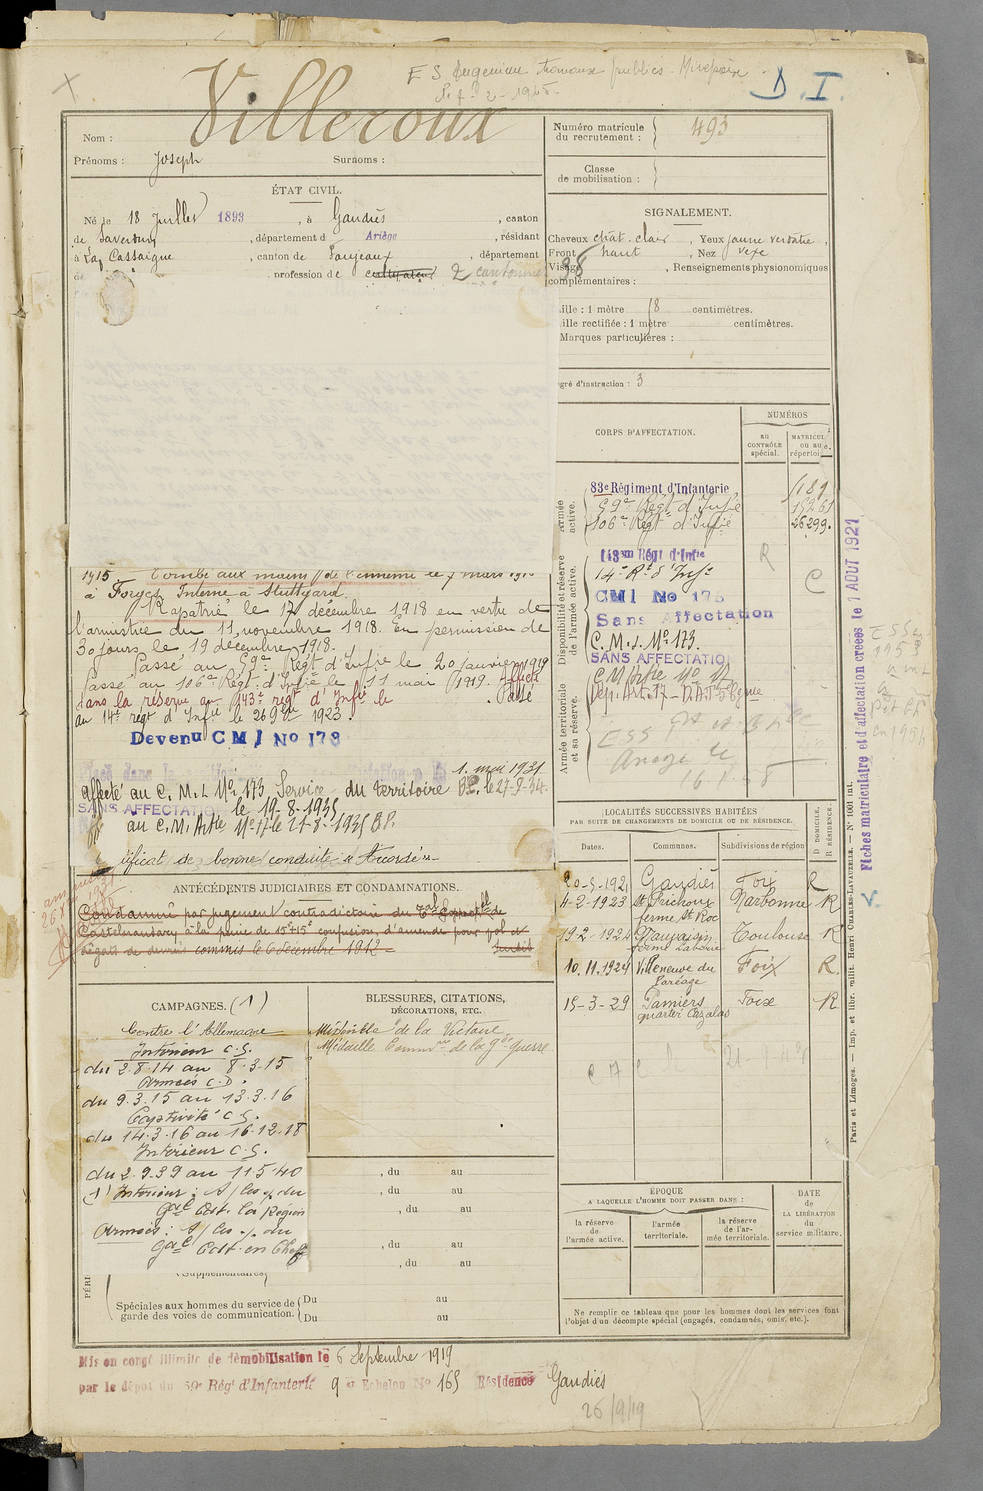 E S Ingenieur travaux publics - Mirepoix
D.I.
Villeroux
Nom :
Prénoms : Joseph Surnoms :
Numéro matricule du recrutement : 493
Classe de mobilisation :
ÉTAT CIVIL.
Né le 18 Juillet 1893, à Gaudiès, canton
de Saverdun, département d Ariège, résidant
à La Cassaigne, canton de Fanjeaux, département
de , profession de cultivateur 2 cantonnier
SIGNALEMENT.
Cheveux chât. clair, Yeux jaune verdâtre,
Front haut, Nez vexe
Visage , Renseignements physionomiques
complémentaires :
ille : 1 mètre 68 centimétres.
ille rectifiée : 1 mètre centimètres.
Marques particulières :
gré d'instruction : 3
CORPS D'AFFECTATION.
NUMÉROS
AU CONTRÔLE spécial.
MATRICUL OU AU répertoi
Armée active.
83e Régiment d'Infanterie
59e Régt d'Infie 15261
106e Régt d'Infie 26299.
Disponibilité et réserve de l'armée active.
143em Régt d'Infie R
14e Rt d'Infie C
CMI No 173
Sans Affectation
C.M.I. No 173.
SANS AFFECTATION
Armée territoriale et sa réserve.
C M Artie No 17
1915 Tombé aux mains de l'ennemi le 9 mars 1916
à Forges Interné à Stuttgard.
Rapatrié le 17 décembre 1918 en vertu de
l'armistice du 11 novembre 1918. En permission de
30 jours le 19 décembre 1918.
Passé au 59e Régt d'Infie le 20 janvier 1919
Passé au 106e Régt d'Infie le 11 mai 1919. Affecté
dans la réserve au 143e régt d'Infie le . Passé
au 14e régt d'Infie le 26 9bre 1923.
Devenu CMI No 173
1. mai 1931
affecté au C.M.I. No 173 Service du territoire B.P. le 27-8-34.
SANS AFFECTATION le 19-8-1935
au C.M. Artie No 17 le 21-8-1935 B.P.
ificat de bonne conduite "Accordé"
ANTÉCÉDENTS JUDICIAIRES ET CONDAMNATIONS.
Condamné par jugement contradictoire du Tal Correctel de
Castelnaudary à la peine de 15 + 15 confusion, d'amende pour vol et
dégâts de denrées commis le 6 décembre 1912
CAMPAGNES. (1)
Contre l'Allemagne
Intérieur C.S.
du 2.8.14 au 8.3.15
Armées C.D.
du 9.3.15 au 13.3.16
Captivité C.S.
du 14.3.16 au 16.12.18
Intérieur C.S.
du 2.9.39 au 11.5.40
(1) Intérieur : S/ les o. du
Gal Cdt. la Région
Armées : S/ les o. du
Gal Cdt. en Chef
BLESSURES, CITATIONS, DÉCORATIONS, ETC.
Médaille de la Victoire.
Médaille Commve de la Gde Guerre
, du au
, du au
, du au
, du au
, du au
PÉRI
(Supplémentaires,
Spéciales aux hommes du service de garde des voies de communication.
Du au
Du au
LOCALITÉS SUCCESSIVES HABITÉES
PAR SUITE DE CHANGEMENTS DE DOMICILE OU DE RÉSIDENCE.
Dates. Communes. Subdivisions de région
D DOMICILE. R RÉSIDENCE.
20-5-1921 Gaudiès Foix R
4-2-1923 St Frichoux ferme St Roc Narbonne R
19-2-1924 Mauvaisin Toulouse R
10.11.1924 Villeneuve du Paréage Foix R.
15-3-29 Pamiers quartier Cazalas Foix R
ÉPOQUE
A LAQUELLE L'HOMME DOIT PASSER DANS :
la réserve de l'armée active.
l'armée territoriale.
la réserve de l'armée territoriale.
DATE de LA LIBÉRATION du service militaire.
Ne remplir ce tableau que pour les hommes dont les services font
l'objet d'un décompte spécial (engagés, condamnés, omis, etc.).
Mis en congé illimité de démobilisation le 6 Septembre 1919
par le dépôt du 59e Régt d'Infanterie 9e Echelon No 165 Résidence Gaudiès
26/9/19
Fiches matriculaire et d'affectation créées le 1 AOUT 1921
Paris et Limoges. — Imp. et libr. milit. Henri CHARLES-LAVAUZELLE. — N° 1001 int.